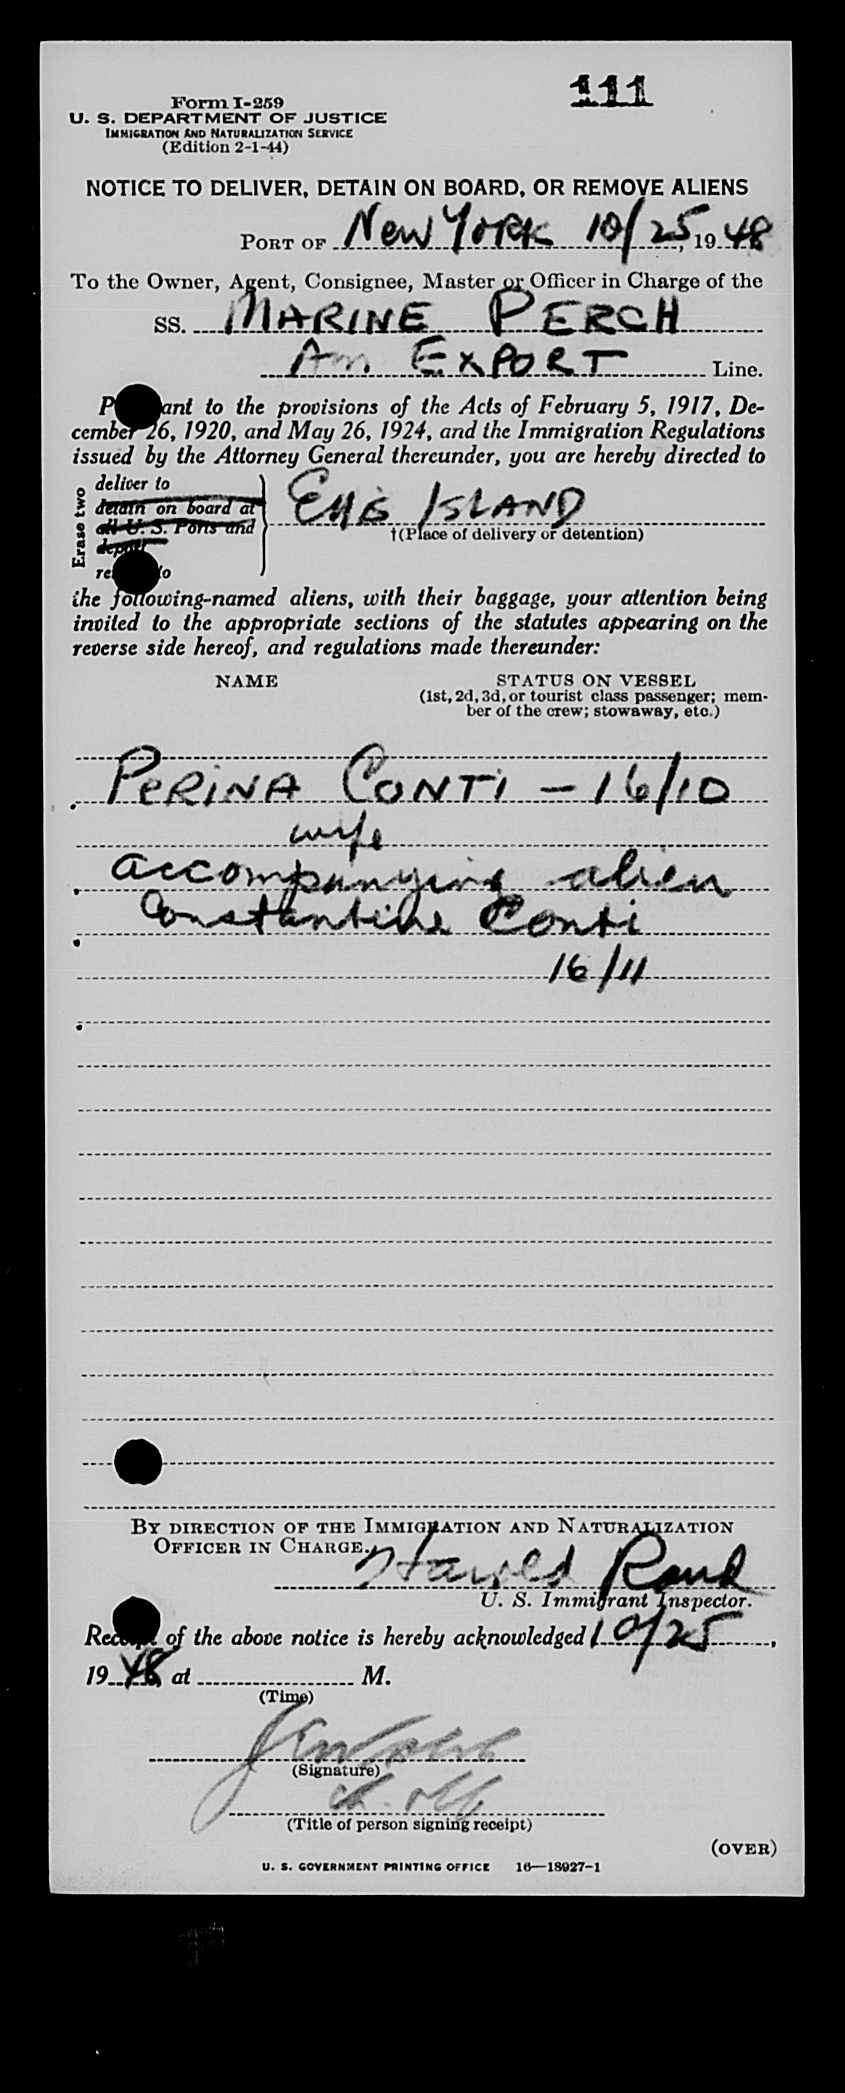 111
Form I-259
U. S. DEPARTMENT OF JUSTICE
IMMIGRATION AND NATURALIZATION SERVICE
(Edition 2-1-44)
NOTICE TO DELIVER, DETAIN ON BOARD, OR REMOVE ALIENS
PORT OF New York 10/25, 1948
To the Owner, Agent, Consignee, Master or Officer in Charge of the
SS. MARINE PERCH
Am EXPORT Line.
P ant to the provisions of the Acts of February 5, 1917, De-
cember 26, 1920, and May 26, 1924, and the Immigration Regulations
issued by the Attorney General thereunder, you are hereby directed to
Erase two
deliver to
detain on board at
all U. S. Ports and
deport
re to
Ellis ISLAND
†(Place of delivery or detention)
the following-named aliens, with their baggage, your attention being
invited to the appropriate sections of the statutes appearing on the
reverse side hereof, and regulations made thereunder:
NAME STATUS ON VESSEL
(1st, 2d, 3d, or tourist class passenger; mem-
ber of the crew; stowaway, etc.)
PERINA CONTI - 16/10
wife
accompanying alien
Constantine Conti
16/11
BY DIRECTION OF THE IMMIGRATION AND NATURALIZATION
OFFICER IN CHARGE.
Harold Rand
U. S. Immigrant Inspector.
Receipt of the above notice is hereby acknowledged 10/25,
1948, at M.
(Time)
(Signature)
(Title of person signing receipt)
(OVER)
U. S. GOVERNMENT PRINTING OFFICE 16—18927-1